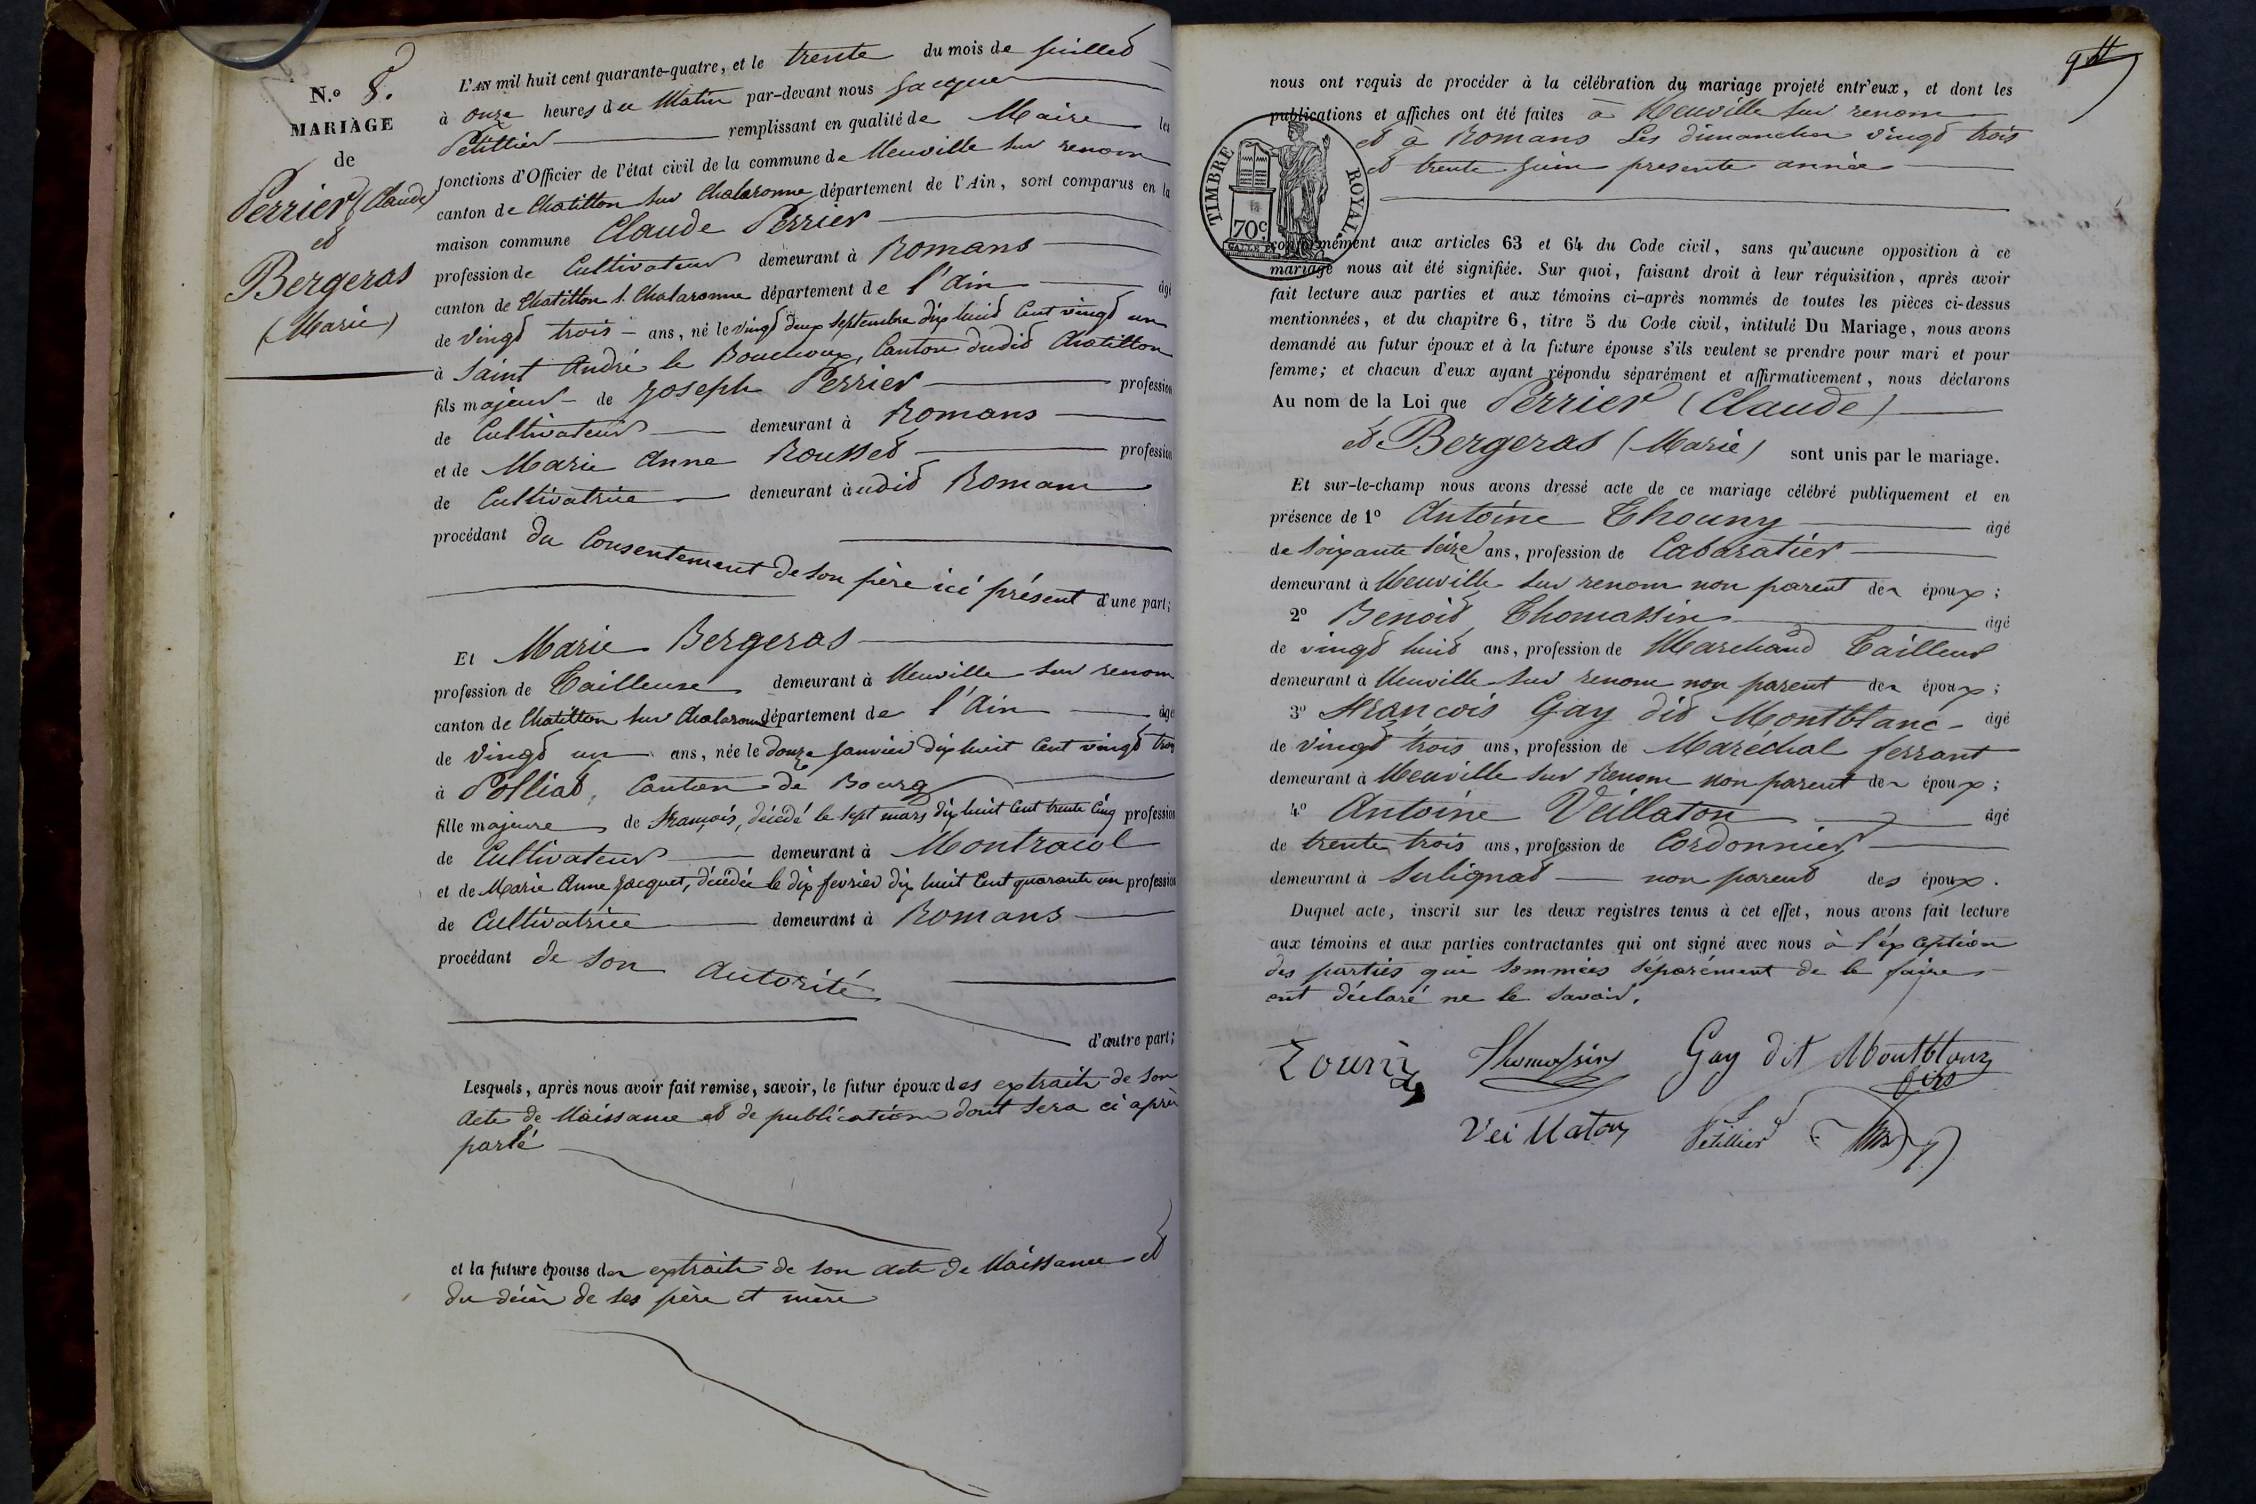 N.o 8.
MARIAGE
de
Perrier (Claude)
et
Bergeras
(Marie)
L'AN mil huit cent quarante-quatre, et le trente du mois de juillet
à onze heures du Matin par-devant nous Jacques
Petillier remplissant en qualité de Maire les
fonctions d'Officier de l'état civil de la commune de Neuville sur renom
canton de Chatillon sur Chalaronne département de l'Ain, sont comparus en la
maison commune Claude Perrier
profession de Cultivateur demeurant à Romans
canton de Chatillon s. Chalaronne département de l'Ain âgé
de vingt trois ans, né le vingt deux septembre dix huit Cent vingt un
à Saint André le Bouchoux, Canton dudit Chatillon
fils majeur de Joseph Perrier profession
de Cultivateur demeurant à Romans
et de Marie Anne Rousset profession
de Cultivatrice demeurant àudit Romans
procédant du Consentement de son père ici présent d'une part;
Et Marie Bergeras
profession de Tailleuse demeurant à Neuville sur renom
canton de Chatillon sur Chalaronne département de l'Ain âgée
de vingt un ans, née le douze janvier dix huit Cent vingt trois
à Polliat, Canton de Bourg
fille majeure de François, décédé le sept mars dix huit Cent trente Cinq profession
de Cultivateur demeurant à Montracol
et de Marie Anne Jacquet, décédée le dix fevrier dix huit Cent quarante un profession
de Cultivatrice demeurant à Romans
procédant de son autorité
d'autre part;
Lesquels, après nous avoir fait remise, savoir, le futur époux des extraits de son
acte de Naissance et de publication dont sera ci après
parlé
et la future épouse des extraits de son acte de Naissance et
du décès de ses père et mère
nous ont requis de procéder à la célébration du mariage projeté entr'eux, et dont les
publications et affiches ont été faites à Neuville sur renom
et à Romans Les dimanches vingt trois
et trente juin presente année
TIMBRE ROYAL
70c
conformément aux articles 63 et 64 du Code civil, sans qu'aucune opposition à ce
mariage nous ait été signifiée. Sur quoi, faisant droit à leur réquisition, après avoir
fait lecture aux parties et aux témoins ci-après nommés de toutes les pièces ci-dessus
mentionnées, et du chapitre 6, titre 5 du Code civil, intitulé Du Mariage, nous avons
demandé au futur époux et à la future épouse s'ils veulent se prendre pour mari et pour
femme; et chacun d'eux ayant répondu séparément et affirmativement, nous déclarons
Au nom de la Loi que Perrier (Claude)
et Bergeras (Marie) sont unis par le mariage.
Et sur-le-champ nous avons dressé acte de ce mariage célébré publiquement et en
présence de 1o Antoine Thouny âgé
de soixante seize ans, profession de Cabaratier
demeurant à Neuville sur renom non parent des époux;
2o Benoit Thomassin âgé
de vingt huit ans, profession de Marchand Tailleur
demeurant à Neuville sur renom non parent des époux;
3o François Gay dit Montblanc âgé
de vingt trois ans, profession de Maréchal ferrant
demeurant à Neuville sur Renom non parent des époux;
4o Antoine Veillaton âgé
de trente trois ans, profession de Cordonnier
demeurant à Sulignat non parent des époux.
Duquel acte, inscrit sur les deux registres tenus à cet effet, nous avons fait lecture
aux témoins et aux parties contractantes qui ont signé avec nous à l'éxception
des parties qui sommées séparément de le faire
ont déclaré ne le savoir.
Thomassin Gay dit Montblanc
fils
Veillaton Petillier